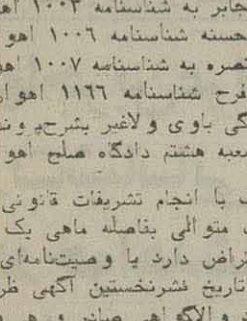 جابر به شناسنامه ۱۰۰۳ اهو
محسنه شناسنامه ۱۰۰۶ اهو
نصره به شناسنامه ۱۰۰۷ اهو
فرح شناسنامه ۱۱۶۶ اهوا
گی باوی و لاغیر بشرح پرونده
شعبه هشتم دادگاه صلح اهو
با انجام تشریفات قانونی
متوالی بفاصله ماهی یک
راض دارد یا وصیتنامه‌ای
تاریخ نشر نخستین آگهی ظر
والاگواهی صادر